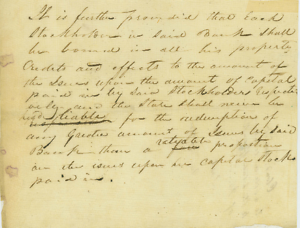 It is further provided that each
Stockholder in said Bank shall
be bound in all his property
Credits and effects to the amount of
the issues upon the amount of Capital
paid in by said Stockholders respectively
only and the State shall never be
liable for the redemption of
any Greater amount of issues by said
Bank than a ratable proportion
on the issues upon its capital Stock
paid in.